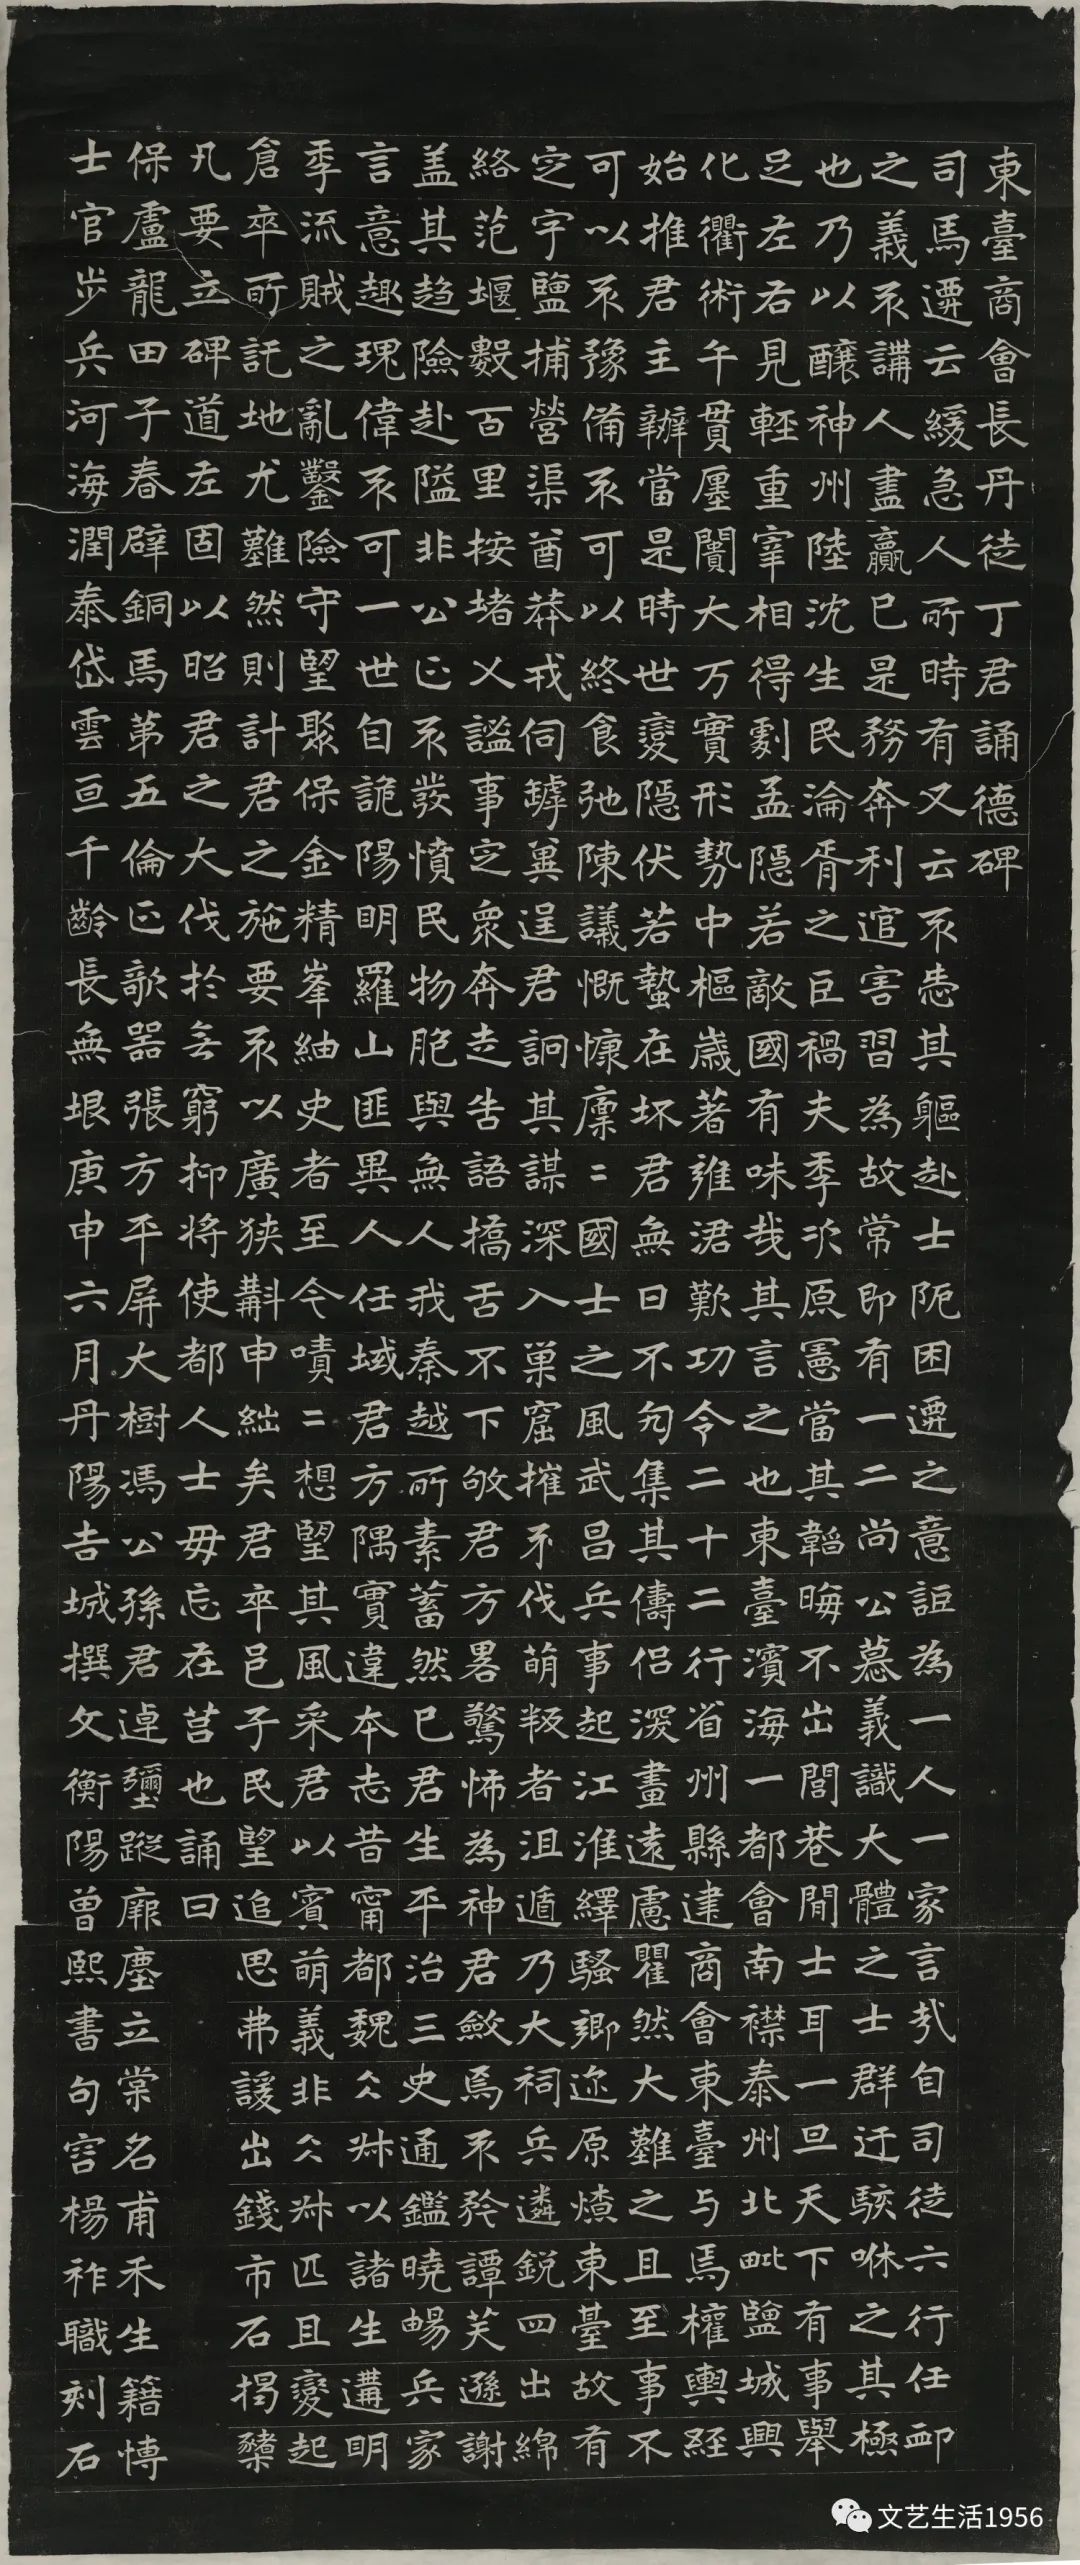 東臺商會長丹徒丁君誦德碑
司馬遷云緩急人所時有又云不恚其軀赴士阨困遷之意詎為一人一家言哉自司徒六行任卹
之義不講人盡贏已是務奔利逭害習為故常即有一二尚公慕義識大體之士群迂駭咻之其極
也乃以釀神州陸沈生民淪胥之巨禍夫季次原憲當其韜晦不出閭巷閒士耳一旦天下有事舉
足左右見輕重宰相得劇孟隱若敵國有味哉其言之也東臺濱海一都會南襟泰州北毗鹽城興
化衢術午貫廛闠大万實形勢中樞歲著雍涒歎功令二十二行省州縣建商會東臺与焉權輿經
始推君主辦當是時世變隱伏若蟄在坏君無日不匃集其儔侶深畫遠慮瞿然大難之且至事不
可以不豫備不可以終食弛陳議慨慷懍二國士之風武昌兵事起江淮繹騷鄉邇原燎東臺故有
定字鹽捕營渠酋莽戎伺罅冀逞君詗其謀深入巢窟摧不伐萌叛者沮遁乃大祠兵遴銳四出綿
絡范堰數百里按堵乂謐事定眾奔走告語撟舌不下敂君方畧驚怖為神君斂焉不矜譚笑遜謝
盖其趋險赴隘非公正不發憤民物胞與無人我秦越所素蓄然已君生平治三史通鑑曉暢兵家
言意趣瑰偉不可一世自詭陽明羅山匪異人任域君方隅實違本志昔甯都魏仌叔以諸生遘明
季流賊之亂鑿險守望聚保金精峯紬史者至今嘖二想望其風采君以賓萌義非仌叔匹且變起
倉卒所託地尤難然則計君之施要不以廣狹斠申絀矣君卒邑子民望追思弗諼出錢市石揭櫫
凡要立碑道左固以昭君之大伐於無窮抑將使都人士毋忘在莒也誦曰
保盧龍田子春辟銅馬第五倫正歌器張方平屏大樹馮公孫君逴蹤塵立棠名甫禾生籍愽
士官步兵河海潤泰岱雲亘千齡長無垠庚申六月丹陽吉城撰文衡陽曾熙書句容楊祚職刻石
文艺生活1956